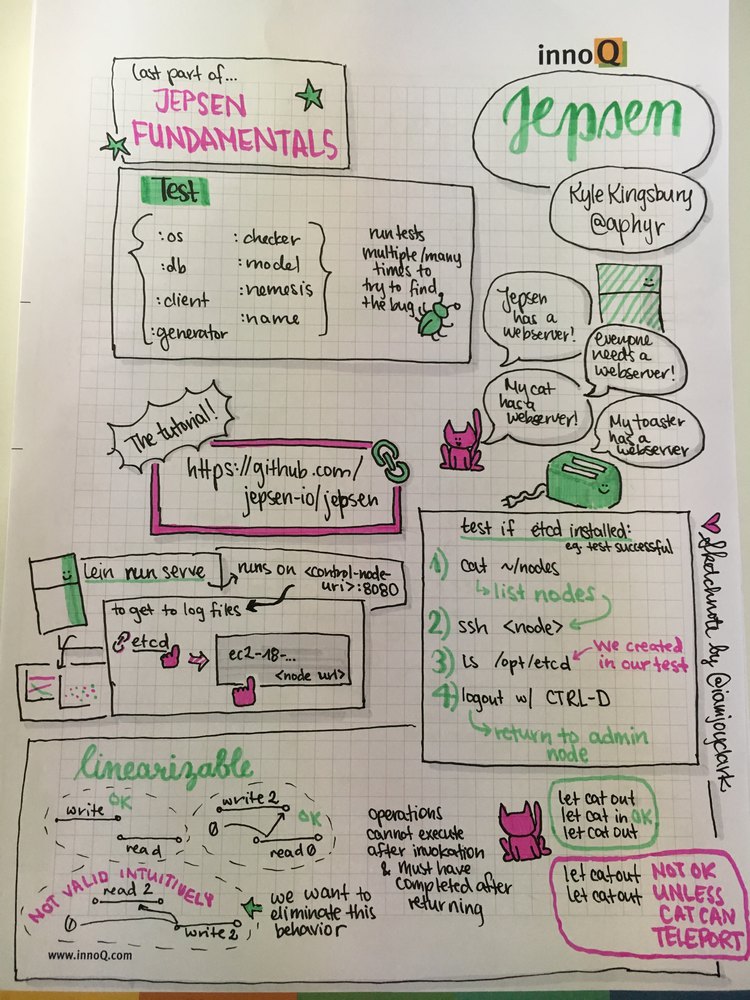 innoQ
last part of...
JEPSEN
FUNDAMENTALS
Jepsen
Kyle Kingsbury
@aphyr
Test
:os
:db
:client
:generator
:checker
:model
:nemesis
:name
run tests
multiple/many
times to
try to find
the bug
Jepsen
has a
webserver!
everyone
needs a
webserver!
My cat
has a
webserver!
My toaster
has a
webserver
The tutorial!
https://github.com/
jepsen-io/jepsen
lein run serve
runs on <control-node-
uri>:8080
to get to log files
etcd
ec2-18-...
<node url>
test if etcd installed:
eg. test successful
1) cat ~/nodes
list nodes
2) ssh <node>
3) ls /opt/etcd
We created
in our test
4) logout w/ CTRL-D
return to admin
node
Sketchnote by @iamjoyclark
linearizable
write OK
read
write 2
OK
0
read 0
NOT VALID INTUITIVELY
read 2
0
write 2
we want to
eliminate this
behavior
operations
cannot execute
after invokation
& must have
completed after
returning
let cat out
let cat in OK
let cat out
let cat out NOT OK
let cat out UNLESS
CAT CAN
TELEPORT
www.innoQ.com